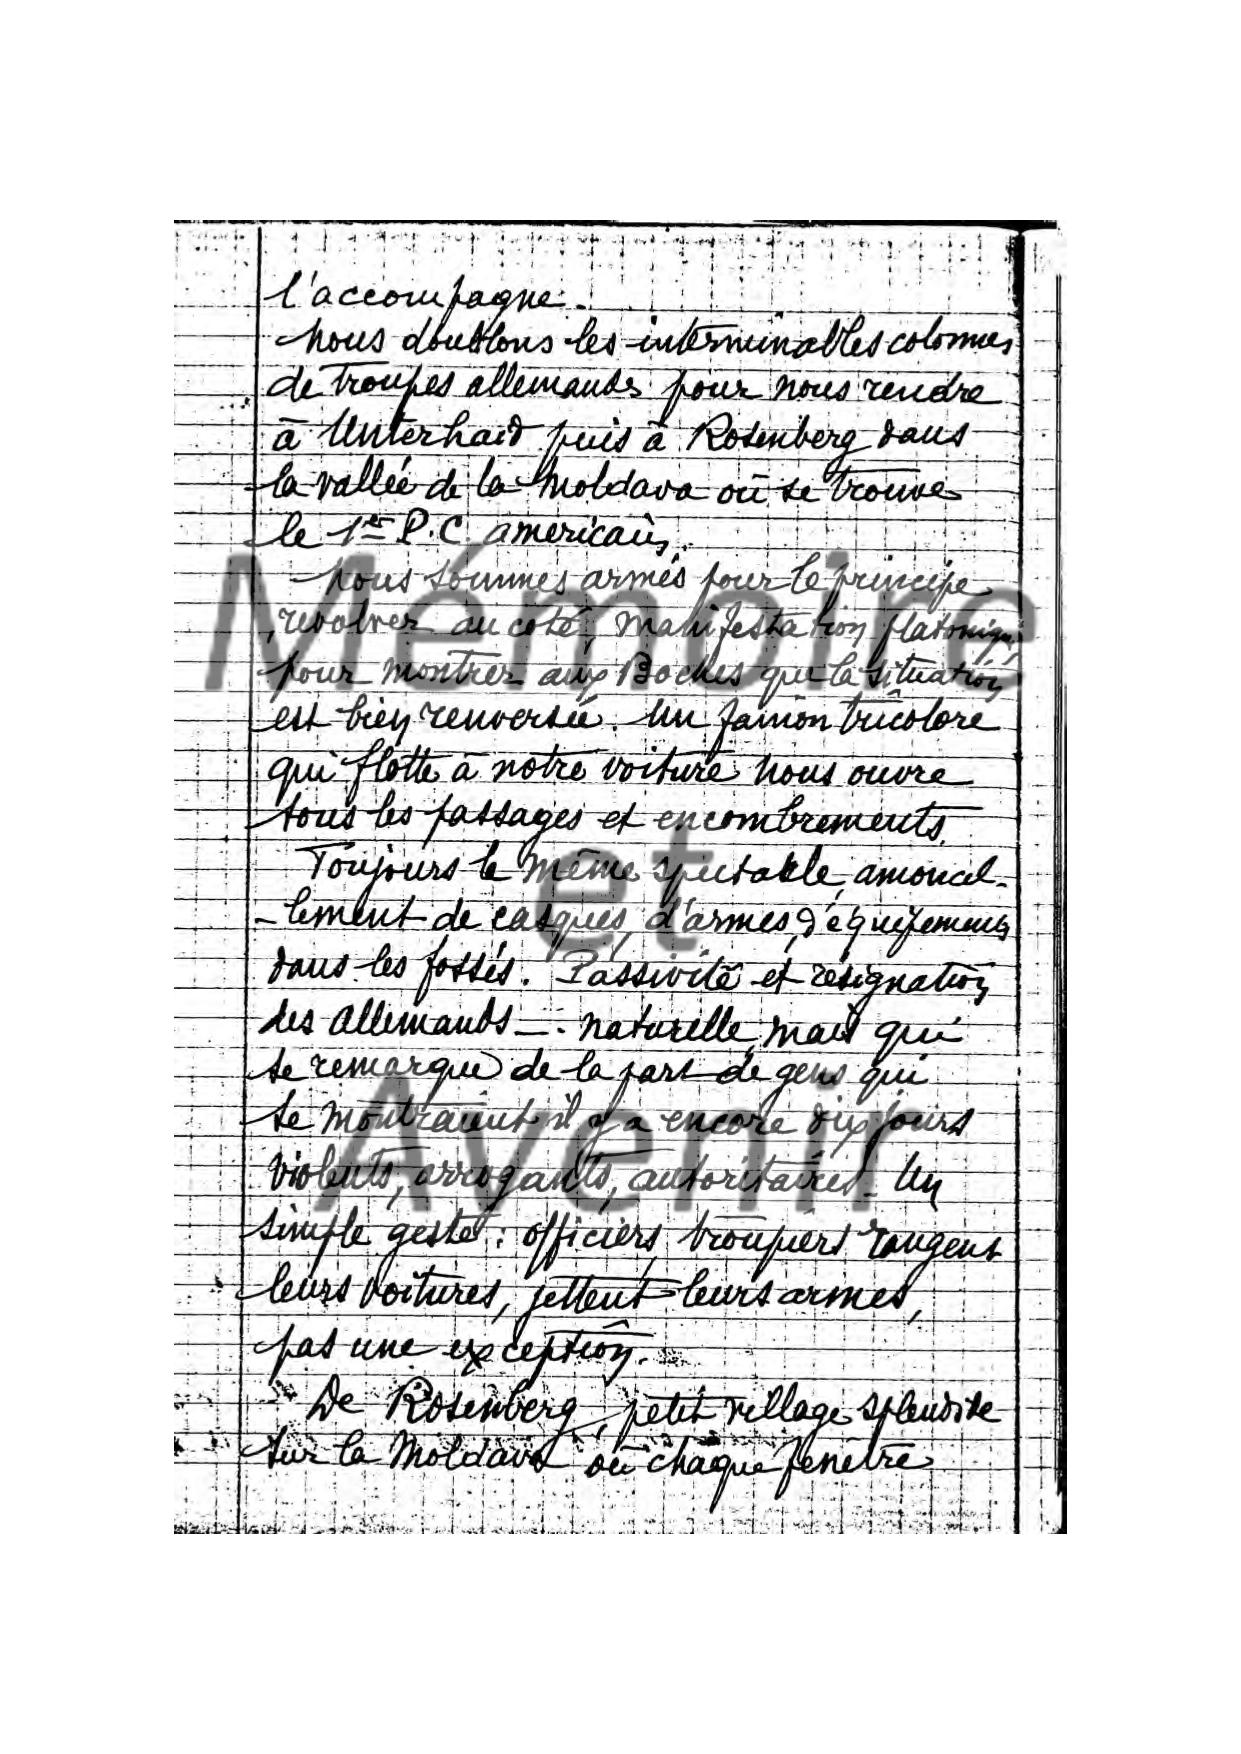 l'accompagne.
Nous doublons les interminables colonnes
de troupes allemandes pour nous rendre
à Unterhaid puis à Rosenberg dans
la vallée de la Moldava où se trouve
le 1er P.C. americain.
Nous sommes armés pour le principe
revolver au coté, manifestation platonique
pour montrer aux Boches que la situation
est bien renversée. Un fanion tricolore
qui flotte à notre voiture nous ouvre
tous les passages et encombrements.
Toujours le même spectacle, amoncel-
-lement de casques, d'armes, d'équipements
dans les fossés. Passivité et résignation
des Allemands - naturelle, mais qui
se remarque de la part de gens qui
se montraient il y a encore dix jours
violents, arrogants, autoritaires. Un
simple geste : officiers, troupiers rangent
leurs voitures, jettent leurs armes,
pas une exception.
De Rosenberg, petit village splendide
sur la Moldava où chaque fenêtre
Mémoire
et
Avenir